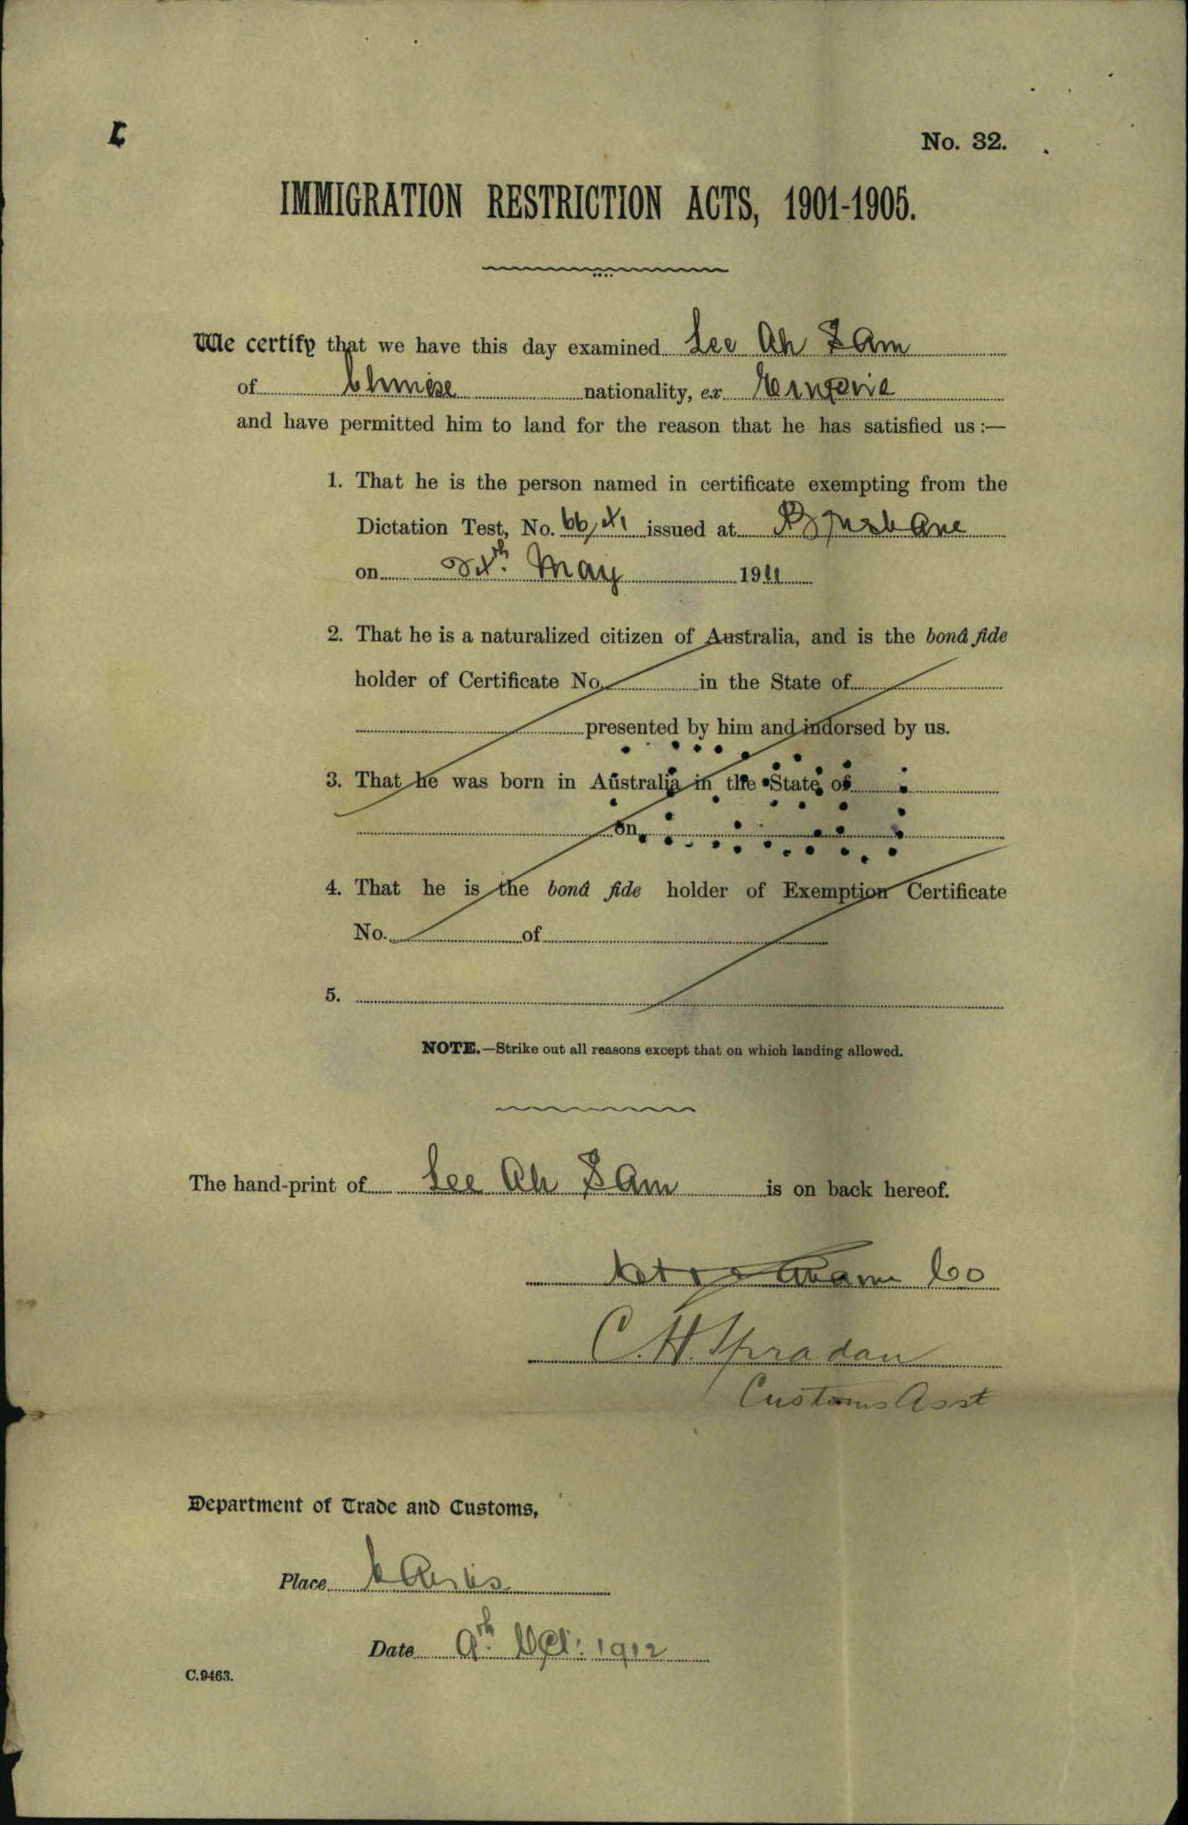 No. 32.
IMMIGRATION RESTRICTION ACTS, 1901-1905.
We certify that we have this day examined Lee Ah Sam
of Chinese nationality, ex Empire
and have permitted him to land for the reason that he has satisfied us :—
1. That he is the person named in certificate exempting from the
Dictation Test, No. issued at Brisbane
on May 1911
2. That he is a naturalized citizen of Australia, and is the bonâ fide
holder of Certificate No. in the State of
presented by him and indorsed by us.
3. That he was born in Australia in the State of
on
4. That he is the bonâ fide holder of Exemption Certificate
No. of
5.
NOTE.—Strike out all reasons except that on which landing allowed.
The hand-print of Lee Ah Sam is on back hereof.
Co
C. H. Spradau
Customs Asst
Department of Trade and Customs,
Place Cairns
Date 9th Oct: 1912
C.9463.